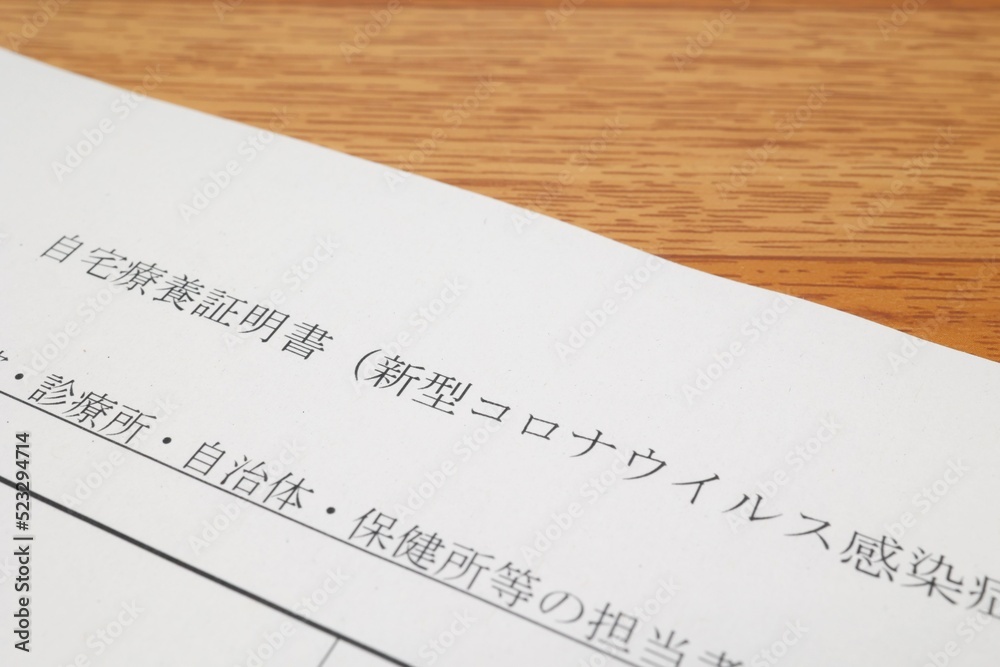 自宅療養証明書（新型コロナウイルス感染症
・診療所・自治体・保健所等の担当者
Adobe Stock | #523294714